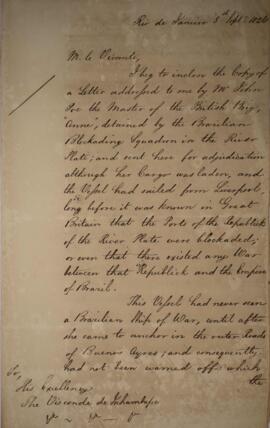 Rio de Janeiro 5th Sept. 1826
M. le Vicomte,
I beg to inclose the Copy of
a Letter addressed to me by Mr. John
Poe the Master of the British Brig,
"Anne", detained by the Brazilian
Blockading Squadron in the River
Plate; and sent here for adjudication
although her Cargo was laden, and
the Vessel had sailed from Liverpool,
long before it was known in Great
Britain that the Ports of the Republick
of the River Plate were blockaded;
or even that there existed any War
between that Republick and the Empire
of Brazil.
This Vessel had never seen
a Brazilian Ship of War, until after
she came to anchor in the outer Roads
of Buenos Ayres; and consequently
had not been warned off: which
the
To,
His Excellency
The Visconde de Inhambupe